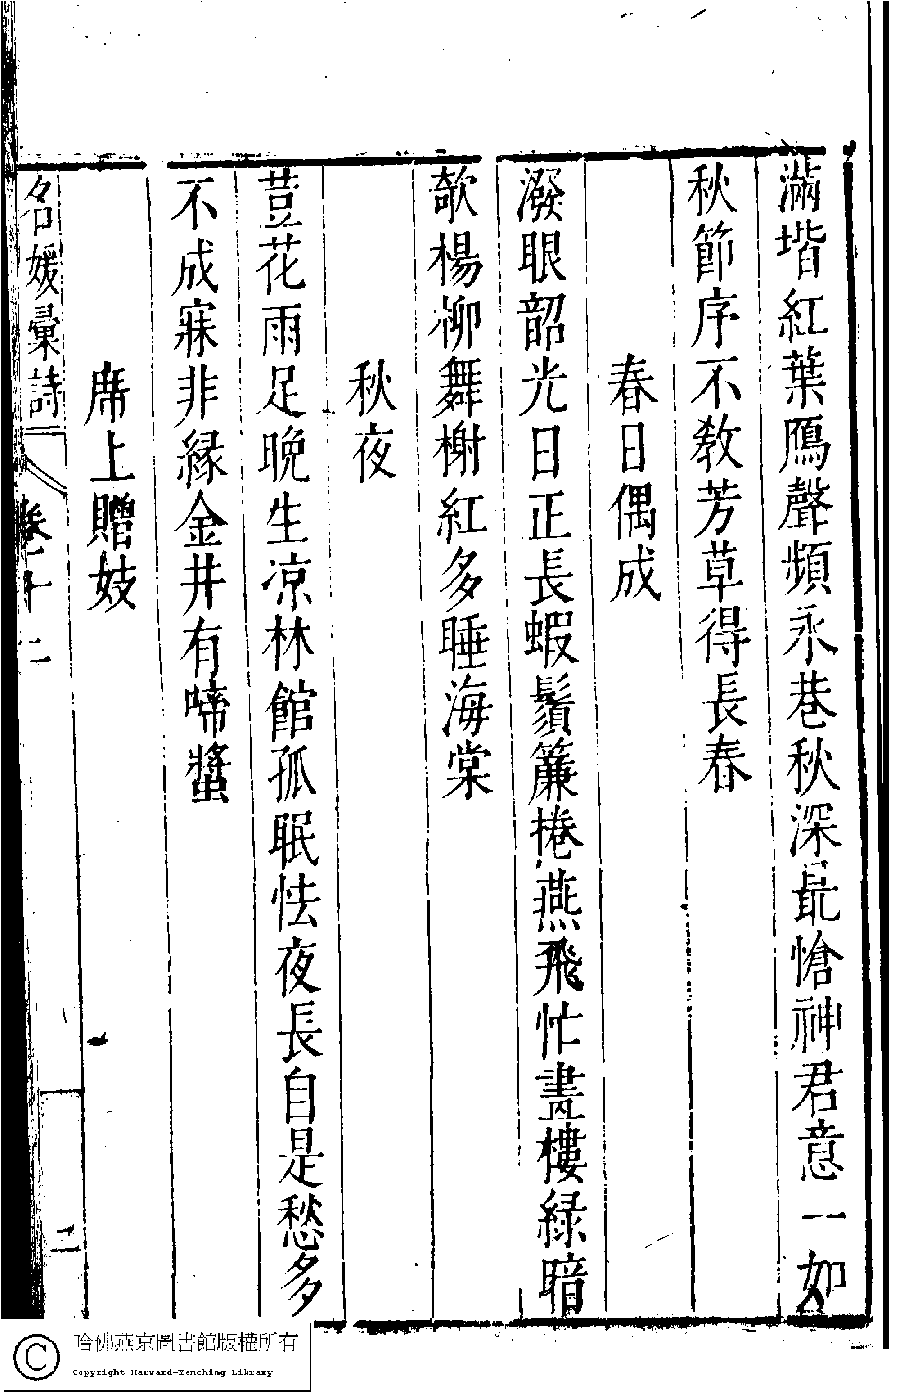 滿堦紅葉鴈聲頻永巷秋深最愴神君意一如
秋節序不教芳草得長春
春日偶成
潑眼韶光日正長蝦鬚簾捲燕飛忙畫樓綠暗
欹楊柳舞榭紅多睡海棠
秋夜
荳花雨足晚生凉林館孤眠怯夜長自是愁多
不成寐非緣金井有啼螀
席上贈妓
名媛彙詩
卷十二
二
哈佛燕京圖書館版權所有
Copyright Harvard-Yenching Library